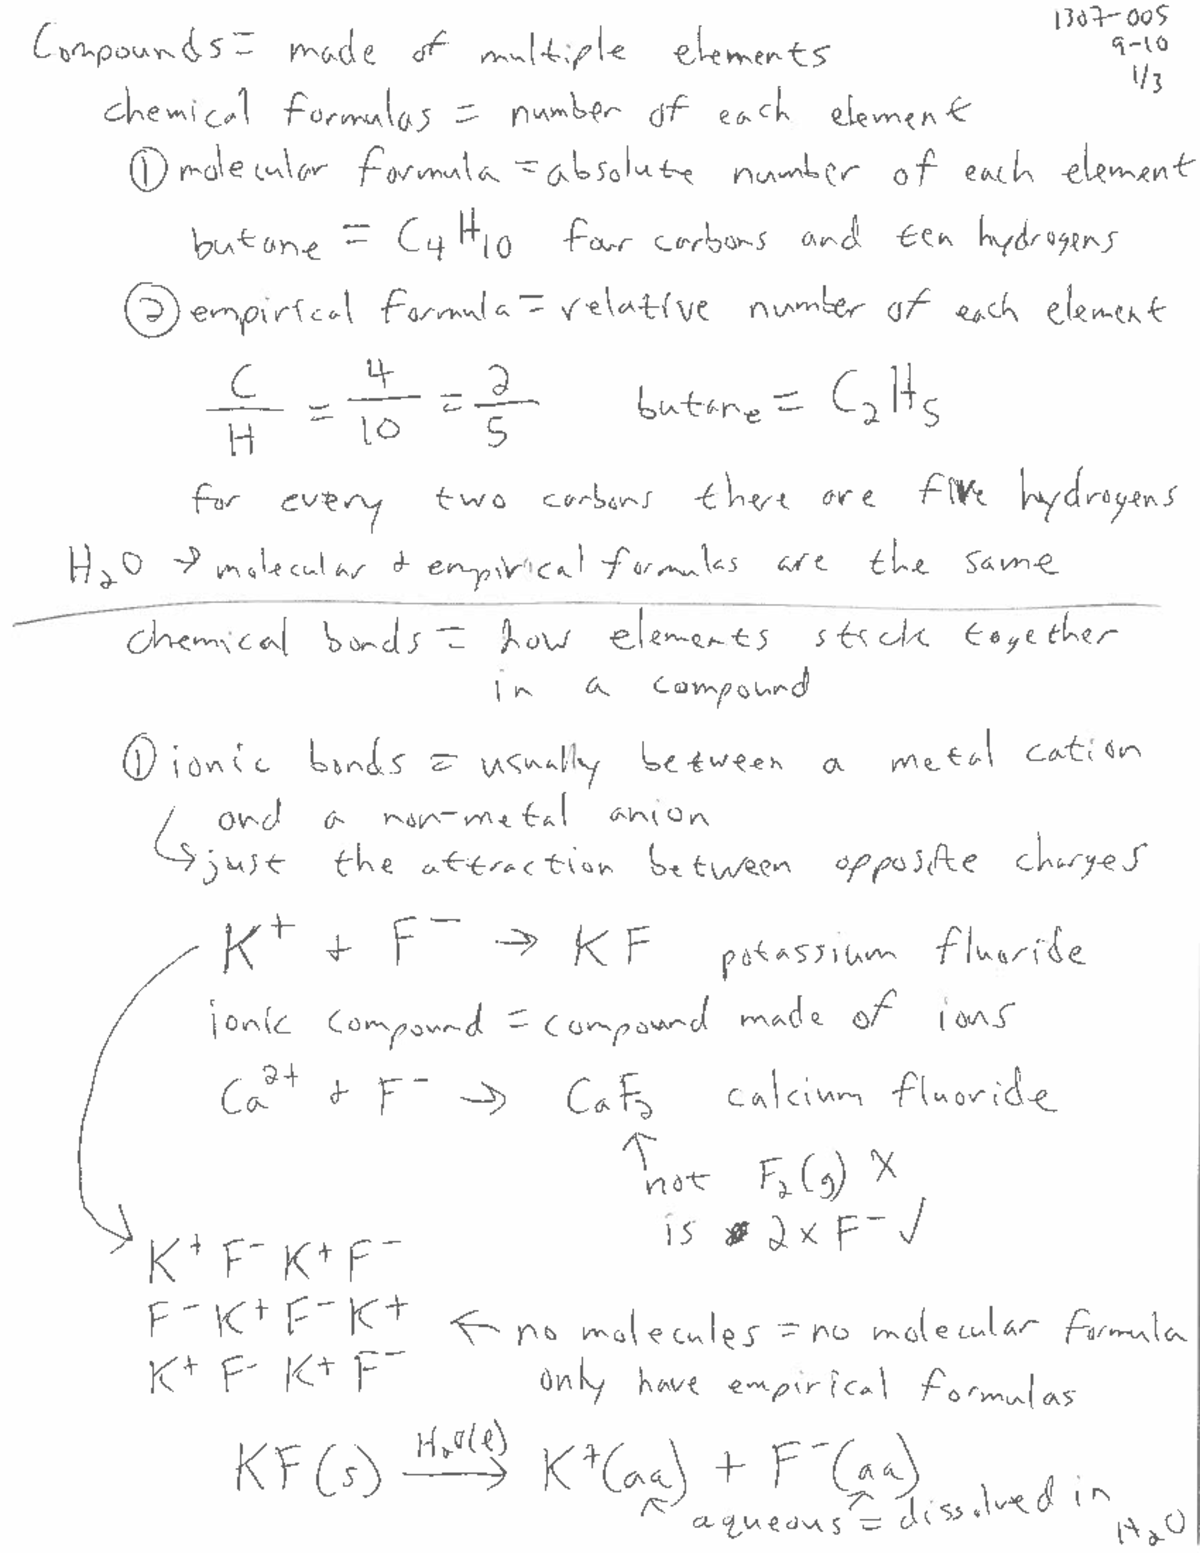 1307-005
9-10
1/3
Compounds = made of multiple elements
chemical formulas = number of each element
① molecular formula = absolute number of each element
butane = C₄H₁₀ four carbons and ten hydrogens
② empirical formula = relative number of each element
C/H = 4/10 = 2/5 butane = C₂H₅
for every two carbons there are five hydrogens
H₂O → molecular + empirical formulas are the same
chemical bonds = how elements stick together
in a compound
① ionic bonds = usually between a metal cation
and a non-metal anion
↳ just the attraction between opposite charges
K⁺ + F⁻ → KF potassium fluoride
ionic compound = compound made of ions
Ca²⁺ + F⁻ → CaF₂ calcium fluoride
↑ not F₂(g) X
is 2 x F⁻ ✓
K⁺ F⁻ K⁺ F⁻
F⁻ K⁺ F⁻ K⁺ ← no molecules = no molecular formula
K⁺ F⁻ K⁺ F⁻ only have empirical formulas
KF(s) H₂O(l) → K⁺(aq) + F⁻(aq)
aqueous = dissolved in
H₂O